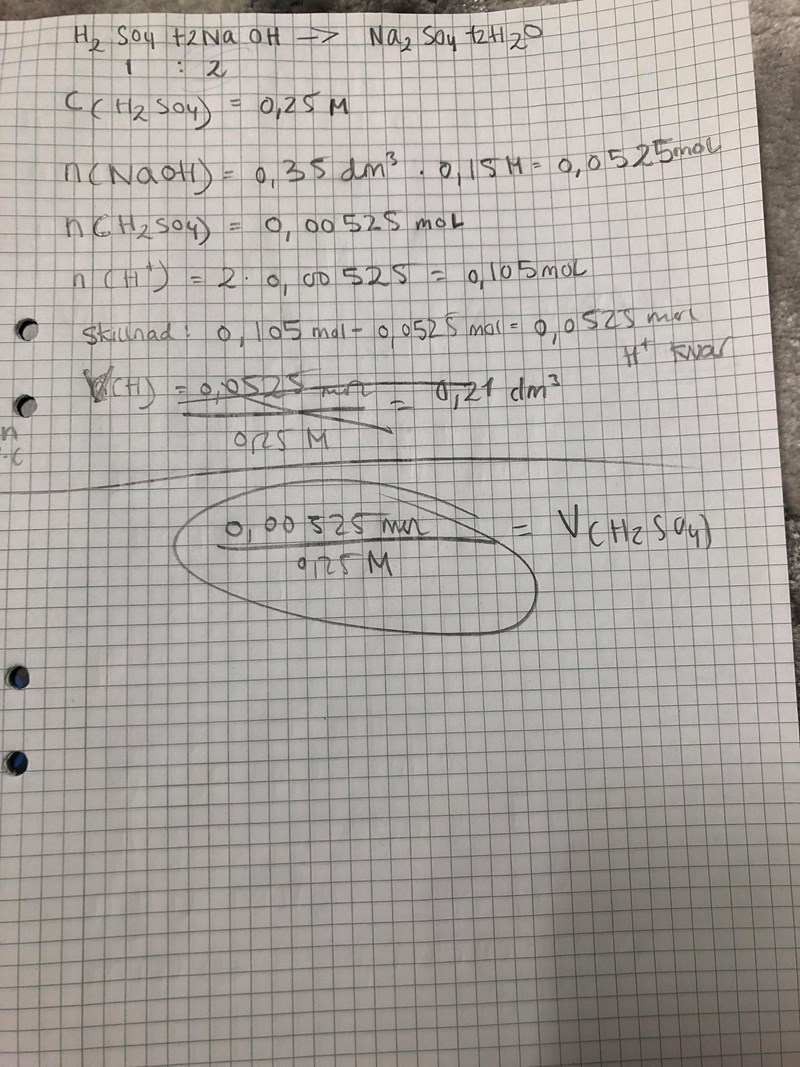 H2 SO4 +2Na OH —> Na2 SO4 +2H2O
1 : 2
C(H2SO4) = 0,25 M
n(NaOH) = 0,35 dm3 · 0,15M = 0,0525mol
n(H2SO4) = 0,00525 mol
n(H+) = 2· 0,00525 = 0,105mol
Skillnad: 0,105 mol - 0,0525 mol = 0,0525 mol
H+ kvar
V(H) = 0,0525 mol = 0,21 dm3
0,25 M
n
c
0,00525 mol = V(H2SO4)
0,25 M